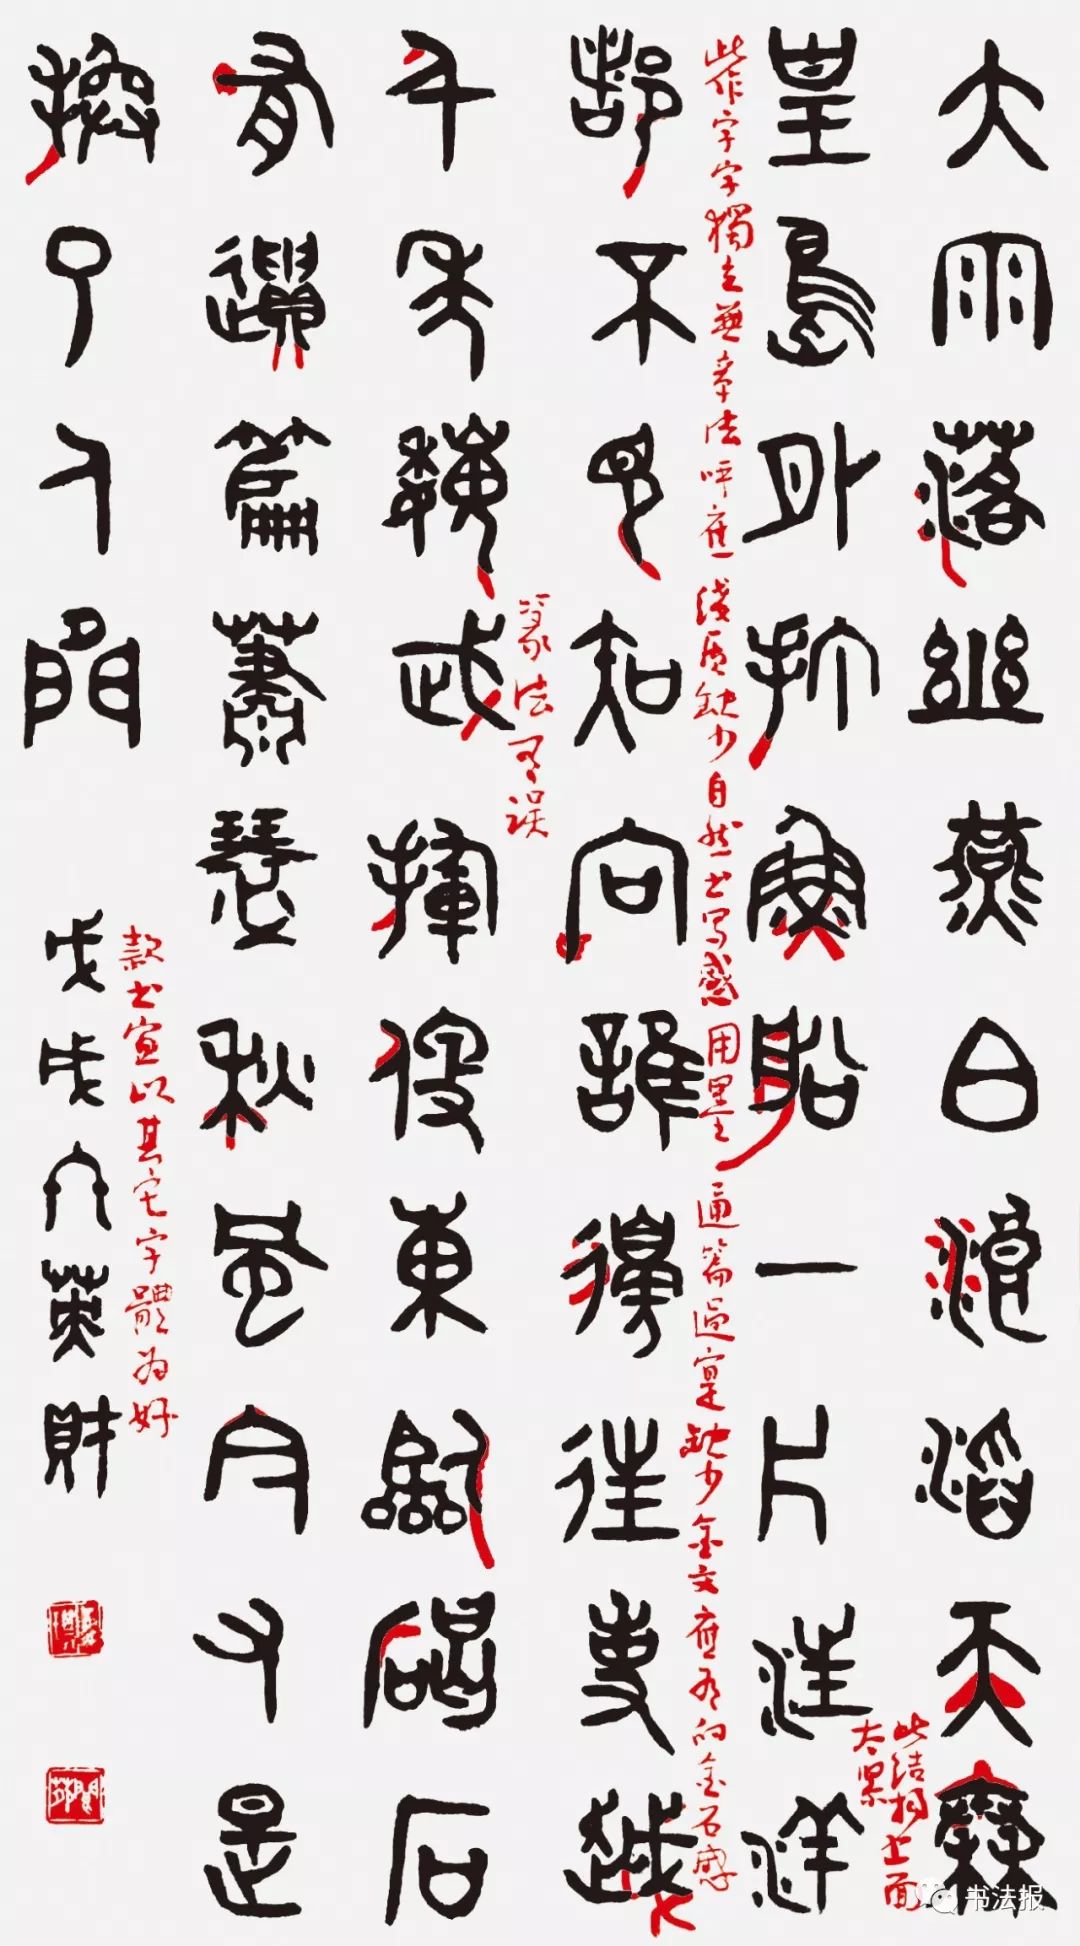 大雨落幽燕白浪滔天秦
皇島外打魚船一片汪洋
都不見知向誰邊往事越
千年魏武揮鞭東臨碣石
有遺篇蕭瑟秋風今又是
換了人間
戊戌六英財
此结构上面
太累
此作字字獨立無章法呼應 线质缺少自然书写感 用墨 通篇过实缺少金文应有的金石感
篆法有误
款书宜以其它字體为好
书法报